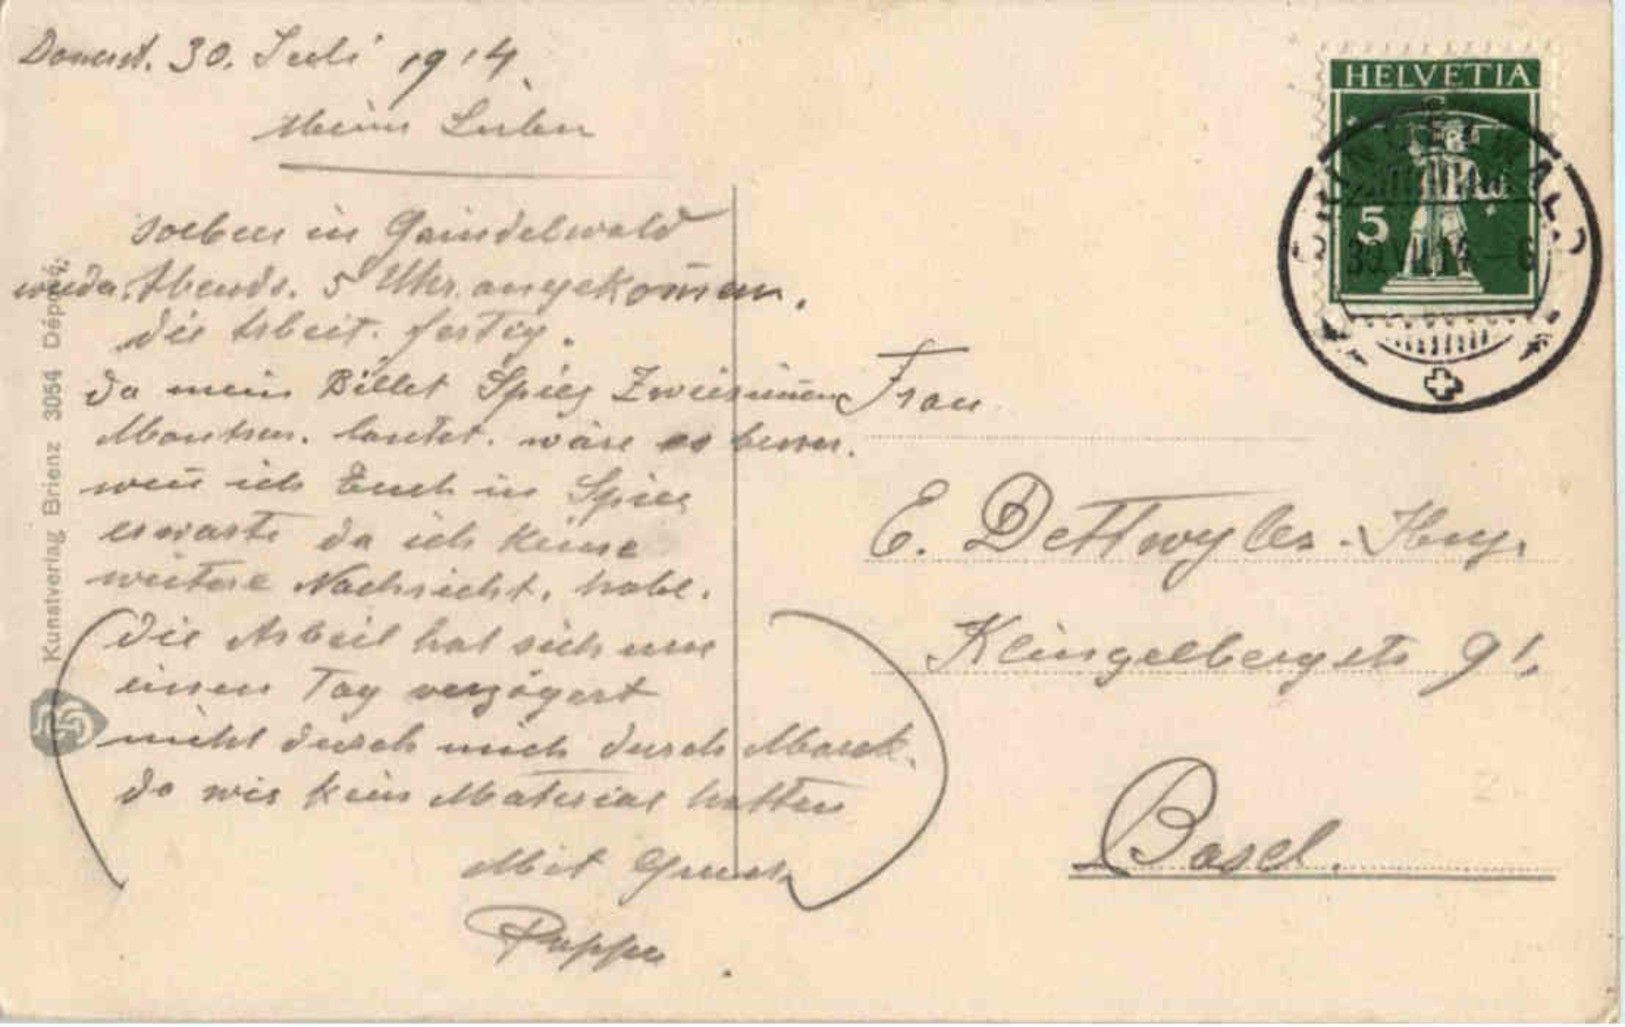 Donnerst. 30. Juli 1914.
Meine Lieben
soeben in Grindelwald
wieder Abends. 5 Uhr. angekom̄en.
die Arbeit. fertig.
da mein Billet Spiez Zweisim̄en
Montreu. lautet. wäre es besser.
wen̄ ich Euch in Spiez
erwarte da ich keine
weitere Nachricht. habe.
(die Arbeit hat sich um
einen Tag verzögert
nicht durch mich durch
da wir kein Material hatten)
Mit Gruss
Pappa
Kunstverlag Brienz 3054 Déposé.
HELVETIA
5
GRINDELWALD
30.VII.14.-6
Frau
E. Dettwyler-
Klingelbergstr 91.
Basel.